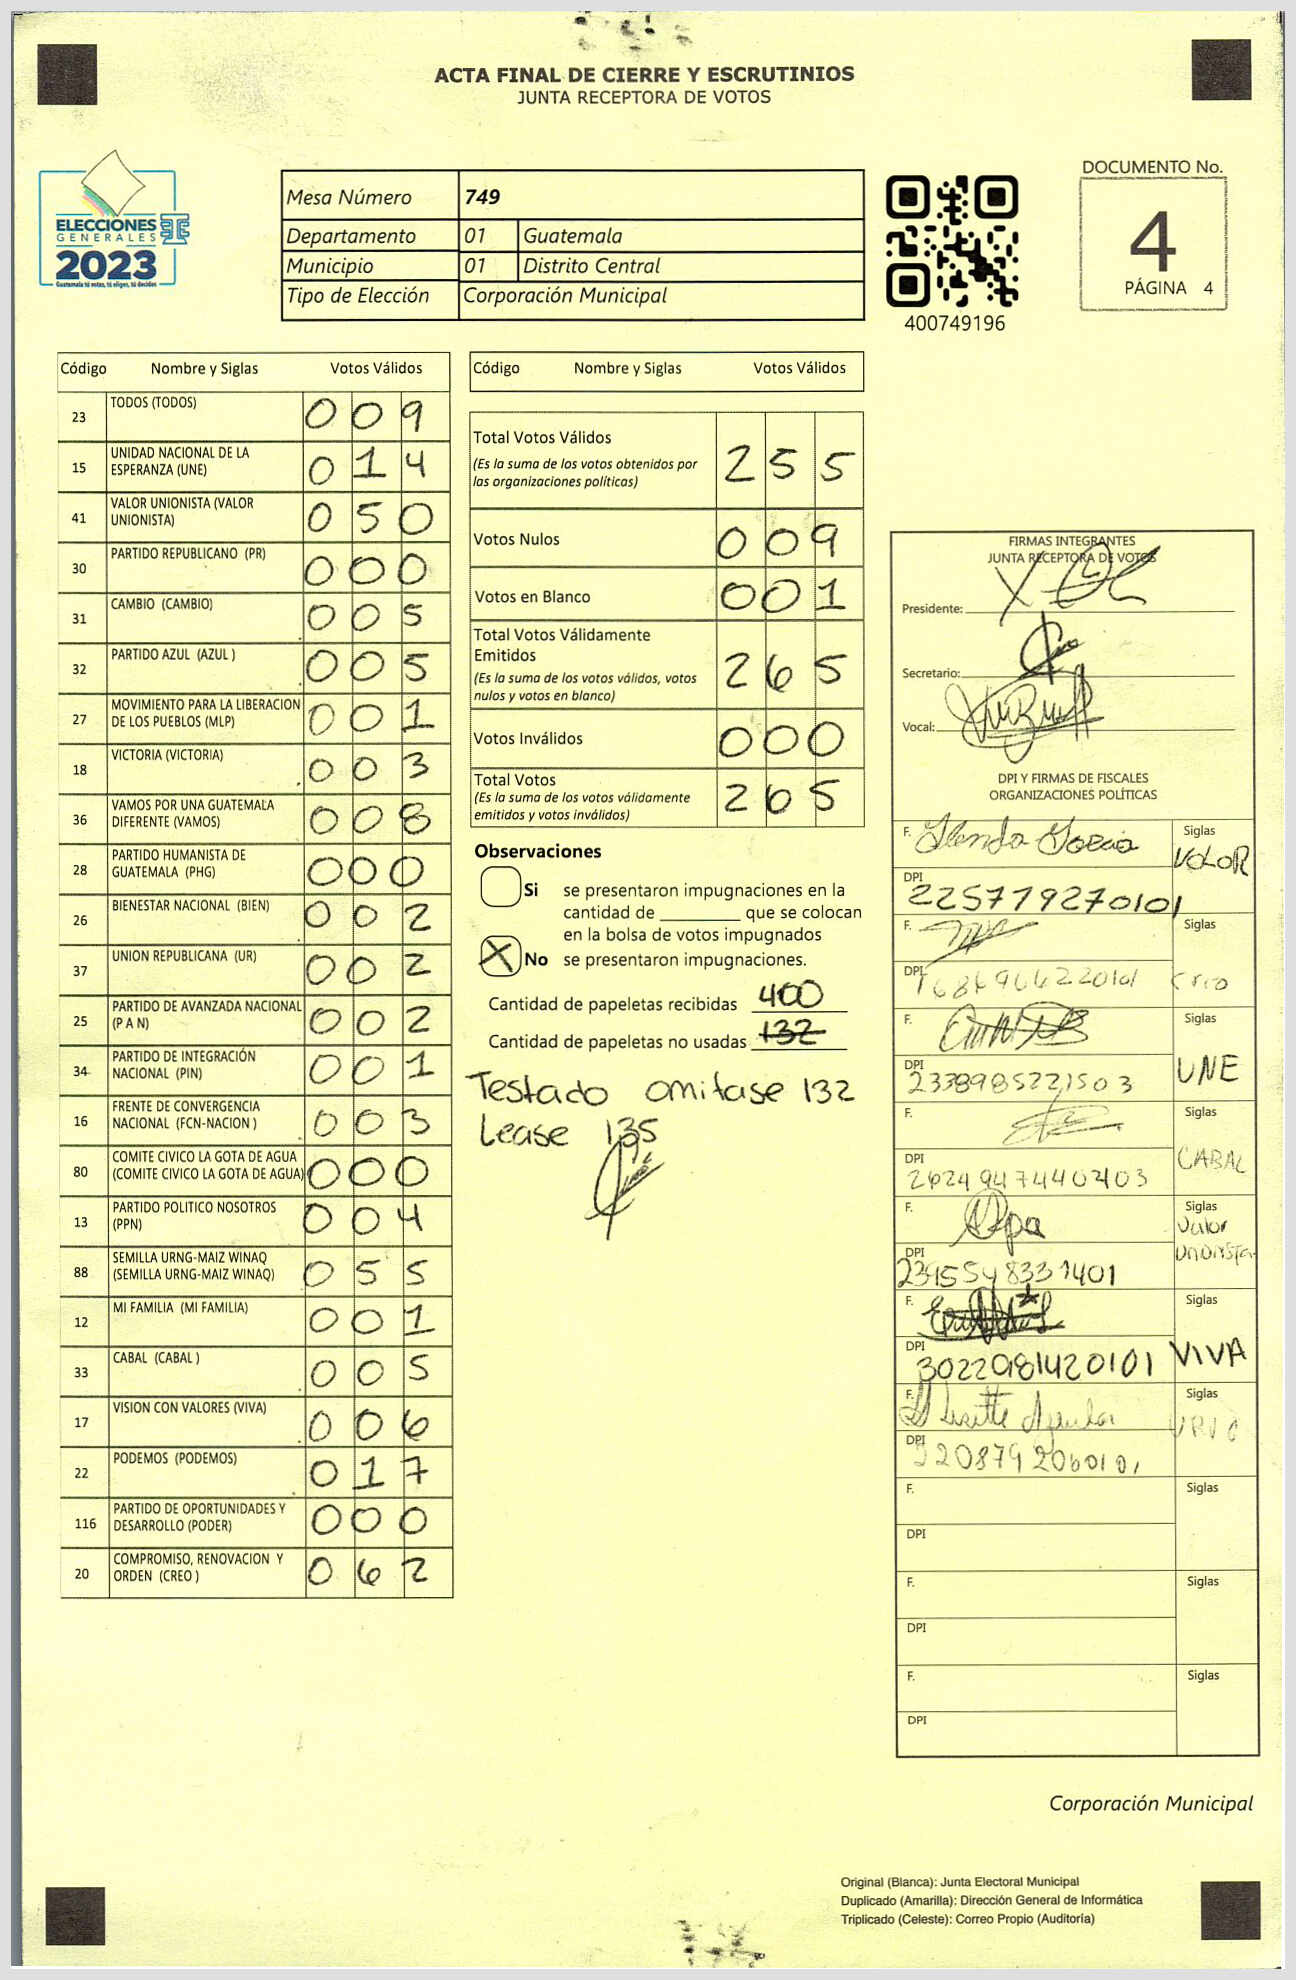 ACTA FINAL DE CIERRE Y ESCRUTINIOS
JUNTA RECEPTORA DE VOTOS
ELECCIONES
GENERALES
2023
Guatemala tú votas, tú eliges, tú decides
Mesa Número 749
Departamento 01 Guatemala
Municipio 01 Distrito Central
Tipo de Elección Corporación Municipal
400749196
DOCUMENTO No.
4
PÁGINA 4
Código Nombre y Siglas Votos Válidos
23 TODOS (TODOS) 009
15 UNIDAD NACIONAL DE LA ESPERANZA (UNE) 014
41 VALOR UNIONISTA (VALOR UNIONISTA) 050
30 PARTIDO REPUBLICANO (PR) 000
31 CAMBIO (CAMBIO) 005
32 PARTIDO AZUL (AZUL ) 005
27 MOVIMIENTO PARA LA LIBERACION DE LOS PUEBLOS (MLP) 001
18 VICTORIA (VICTORIA) 003
36 VAMOS POR UNA GUATEMALA DIFERENTE (VAMOS) 008
28 PARTIDO HUMANISTA DE GUATEMALA (PHG) 000
26 BIENESTAR NACIONAL (BIEN) 002
37 UNION REPUBLICANA (UR) 002
25 PARTIDO DE AVANZADA NACIONAL (P A N) 002
34 PARTIDO DE INTEGRACIÓN NACIONAL (PIN) 001
16 FRENTE DE CONVERGENCIA NACIONAL (FCN-NACION ) 003
80 COMITE CIVICO LA GOTA DE AGUA (COMITE CIVICO LA GOTA DE AGUA) 000
13 PARTIDO POLITICO NOSOTROS (PPN) 004
88 SEMILLA URNG-MAIZ WINAQ (SEMILLA URNG-MAIZ WINAQ) 055
12 MI FAMILIA (MI FAMILIA) 001
33 CABAL (CABAL ) 005
17 VISION CON VALORES (VIVA) 006
22 PODEMOS (PODEMOS) 017
116 PARTIDO DE OPORTUNIDADES Y DESARROLLO (PODER) 000
20 COMPROMISO, RENOVACION Y ORDEN (CREO ) 062
Código Nombre y Siglas Votos Válidos
Total Votos Válidos 255
(Es la suma de los votos obtenidos por
las organizaciones políticas)
Votos Nulos 009
Votos en Blanco 001
Total Votos Válidamente
Emitidos 265
(Es la suma de los votos válidos, votos
nulos y votos en blanco)
Votos Inválidos 000
Total Votos 265
(Es la suma de los votos válidamente
emitidos y votos inválidos)
Observaciones
Si se presentaron impugnaciones en la
cantidad de ________ que se colocan
en la bolsa de votos impugnados
X No se presentaron impugnaciones.
Cantidad de papeletas recibidas 400
Cantidad de papeletas no usadas 132
Testado omitase 132
Lease 135
FIRMAS INTEGRANTES
JUNTA RECEPTORA DE VOTOS
Presidente:
Secretario:
Vocal:
DPI Y FIRMAS DE FISCALES
ORGANIZACIONES POLÍTICAS
F. Siglas
VALOR
DPI 2257779270101
F. Siglas
DPI
F. Siglas
UNE
DPI 2338985221503
F. Siglas
CABAL
DPI 2624947440403
F. Siglas
Valor
Unionista
DPI
F. Siglas
VIVA
DPI 3022981420101
F. Lisette Siglas
DPI
F. Siglas
DPI
F. Siglas
DPI
F. Siglas
DPI
Corporación Municipal
Original (Blanca): Junta Electoral Municipal
Duplicado (Amarilla): Dirección General de Informática
Triplicado (Celeste): Correo Propio (Auditoría)